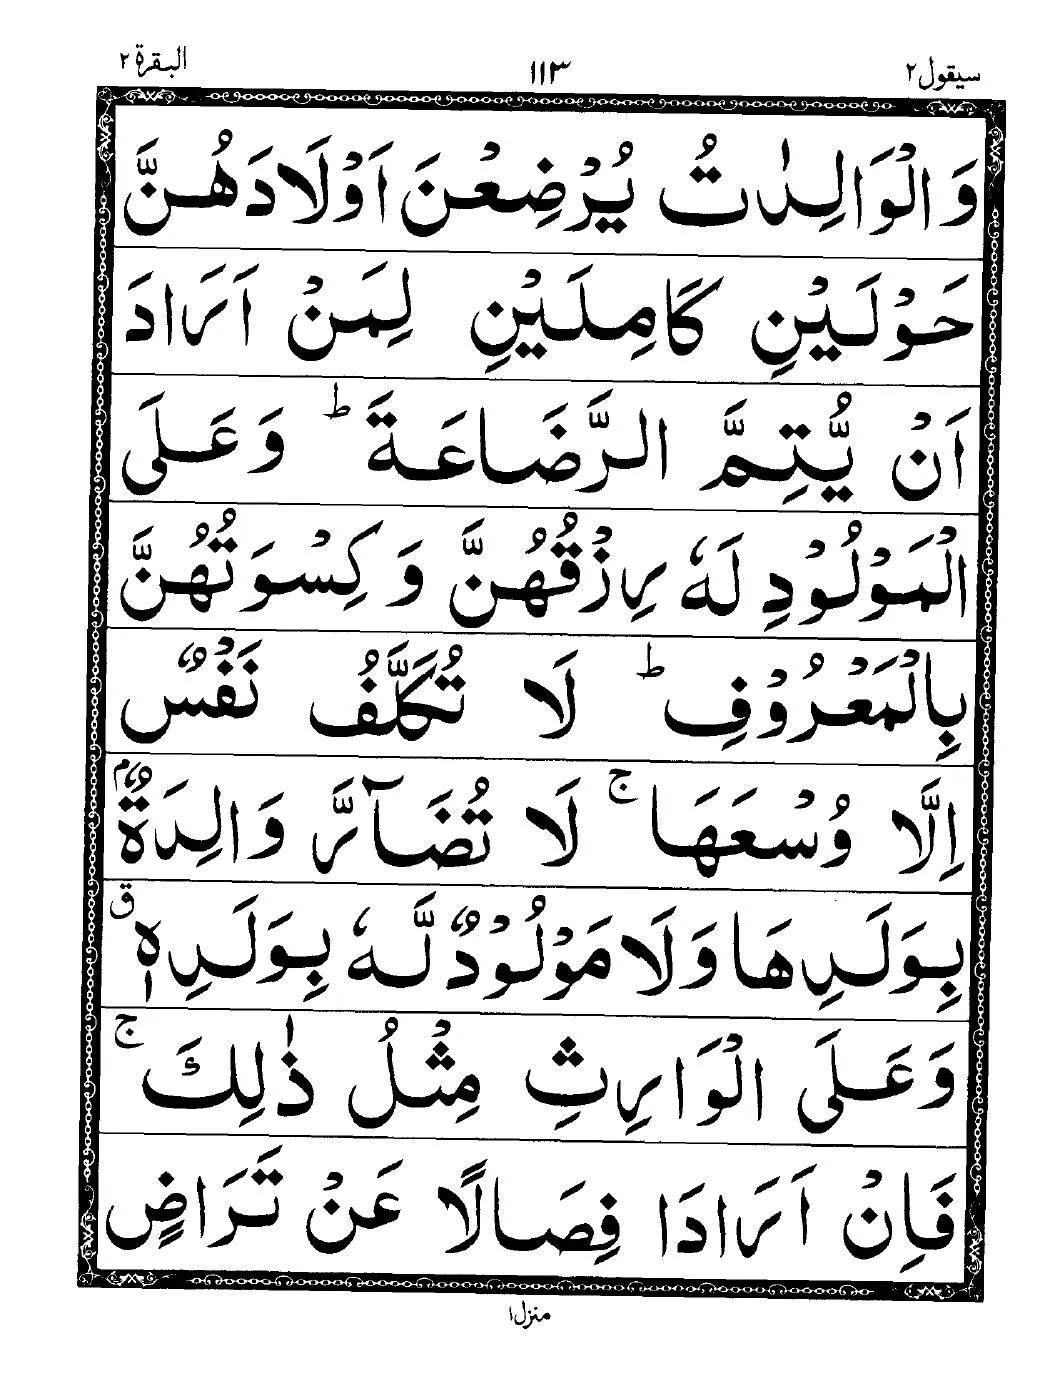 سيقول٢ ١١٣ البقرة ٢
وَالْوَالِدٰتُ يُرْضِعْنَ اَوْلَادَهُنَّ
حَوْلَيْنِ كَامِلَيْنِ لِمَنْ اَرَادَ
اَنْ يُّتِمَّ الرَّضَاعَةَ ؕ وَعَلَى
الْمَوْلُوْدِ لَهٗ رِزْقُهُنَّ وَكِسْوَتُهُنَّ
بِالْمَعْرُوْفِ ؕ لَا تُكَلَّفُ نَفْسٌ
اِلَّا وُسْعَهَا ۚ لَا تُضَآرَّ وَالِدَةٌۢ
بِوَلَدِهَا وَلَا مَوْلُوْدٌ لَّهٗ بِوَلَدِهٖ ق
وَعَلَى الْوَارِثِ مِثْلُ ذٰلِكَ ۚ
فَاِنْ اَرَادَا فِصَالًا عَنْ تَرَاضٍ
منزل١